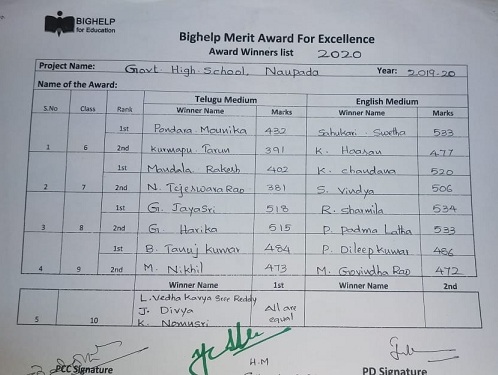 BIGHELP
for Education
Bighelp Merit Award For Excellence
Award Winners list 2020
Project Name: Govt High School, Naupada Year: 2019-20
Name of the Award:
Telugu Medium English Medium
S.No Class Rank Winner Name Marks Winner Name Marks
1st Pondara Mounika 432 Sahukari Swetha 533
1 6 2nd Kurmapu Tarun 391 K. Haasan 477
1st Mandala Rakesh 402 K. chandana 520
2 7 2nd N. Tejeswara Rao 381 S. Vindya 506
1st G. JayaSri 518 R. Sharmila 534
3 8 2nd G. Harika 515 P. Padma Latha 533
1st B. Tanuj kumar 484 P. Dileep kumar 486
4 9 2nd M. Nikhil 473 M. Govindha Rao 472
Winner Name 1st Winner Name 2nd
L. Vedha Kavya Sree Reddy
5 10 J. Divya All are
K. Nomusri equal
PCC Signature H.M PD Signature